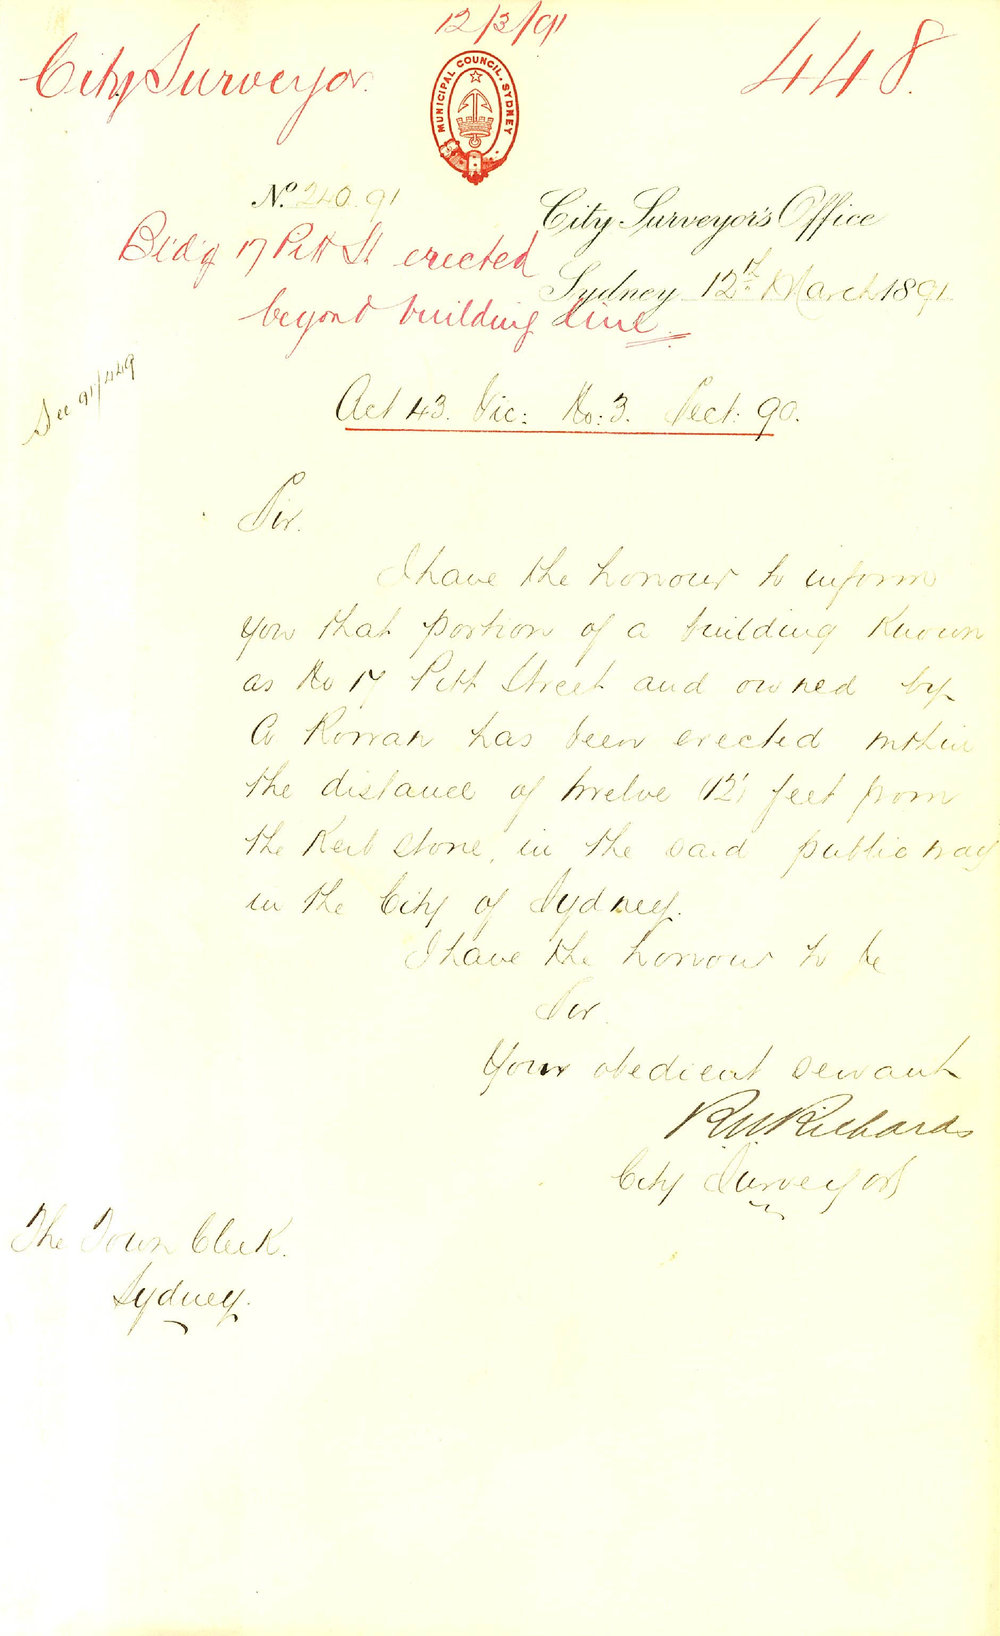 12/3/91
City Surveyor.
448.
MUNICIPAL COUNCIL. SYDNEY
No. 240.91
City Surveyor's Office
Bld'g 17 Pitt St erected
Sydney 12th March 1891
beyond building line.
See 91/449
Act 43. Vic: No: 3. Sect: 90.
Sir.
I have the honour to inform
you that portion of a building known
as No 17 Pitt Street and owned by
A Rowan has been erected within
the distance of twelve (12) feet from
the Kerb stone, in the said public way
in the City of Sydney.
I have the honour to be
Sir.
Your obedient servant
R W Richards
City Surveyor
The Town Clerk.
Sydney.